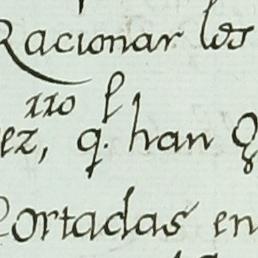 Racionar los
110 l
ez, q. han
Cortadas en